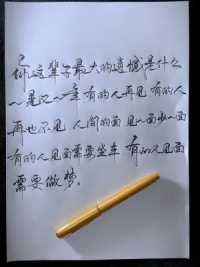 你这辈子最大的遗憾是什么
有的人再见 有的人
再也不见 人间的面 见一面少一面
有的人见面需要坐车 有的人见面
需要做梦。